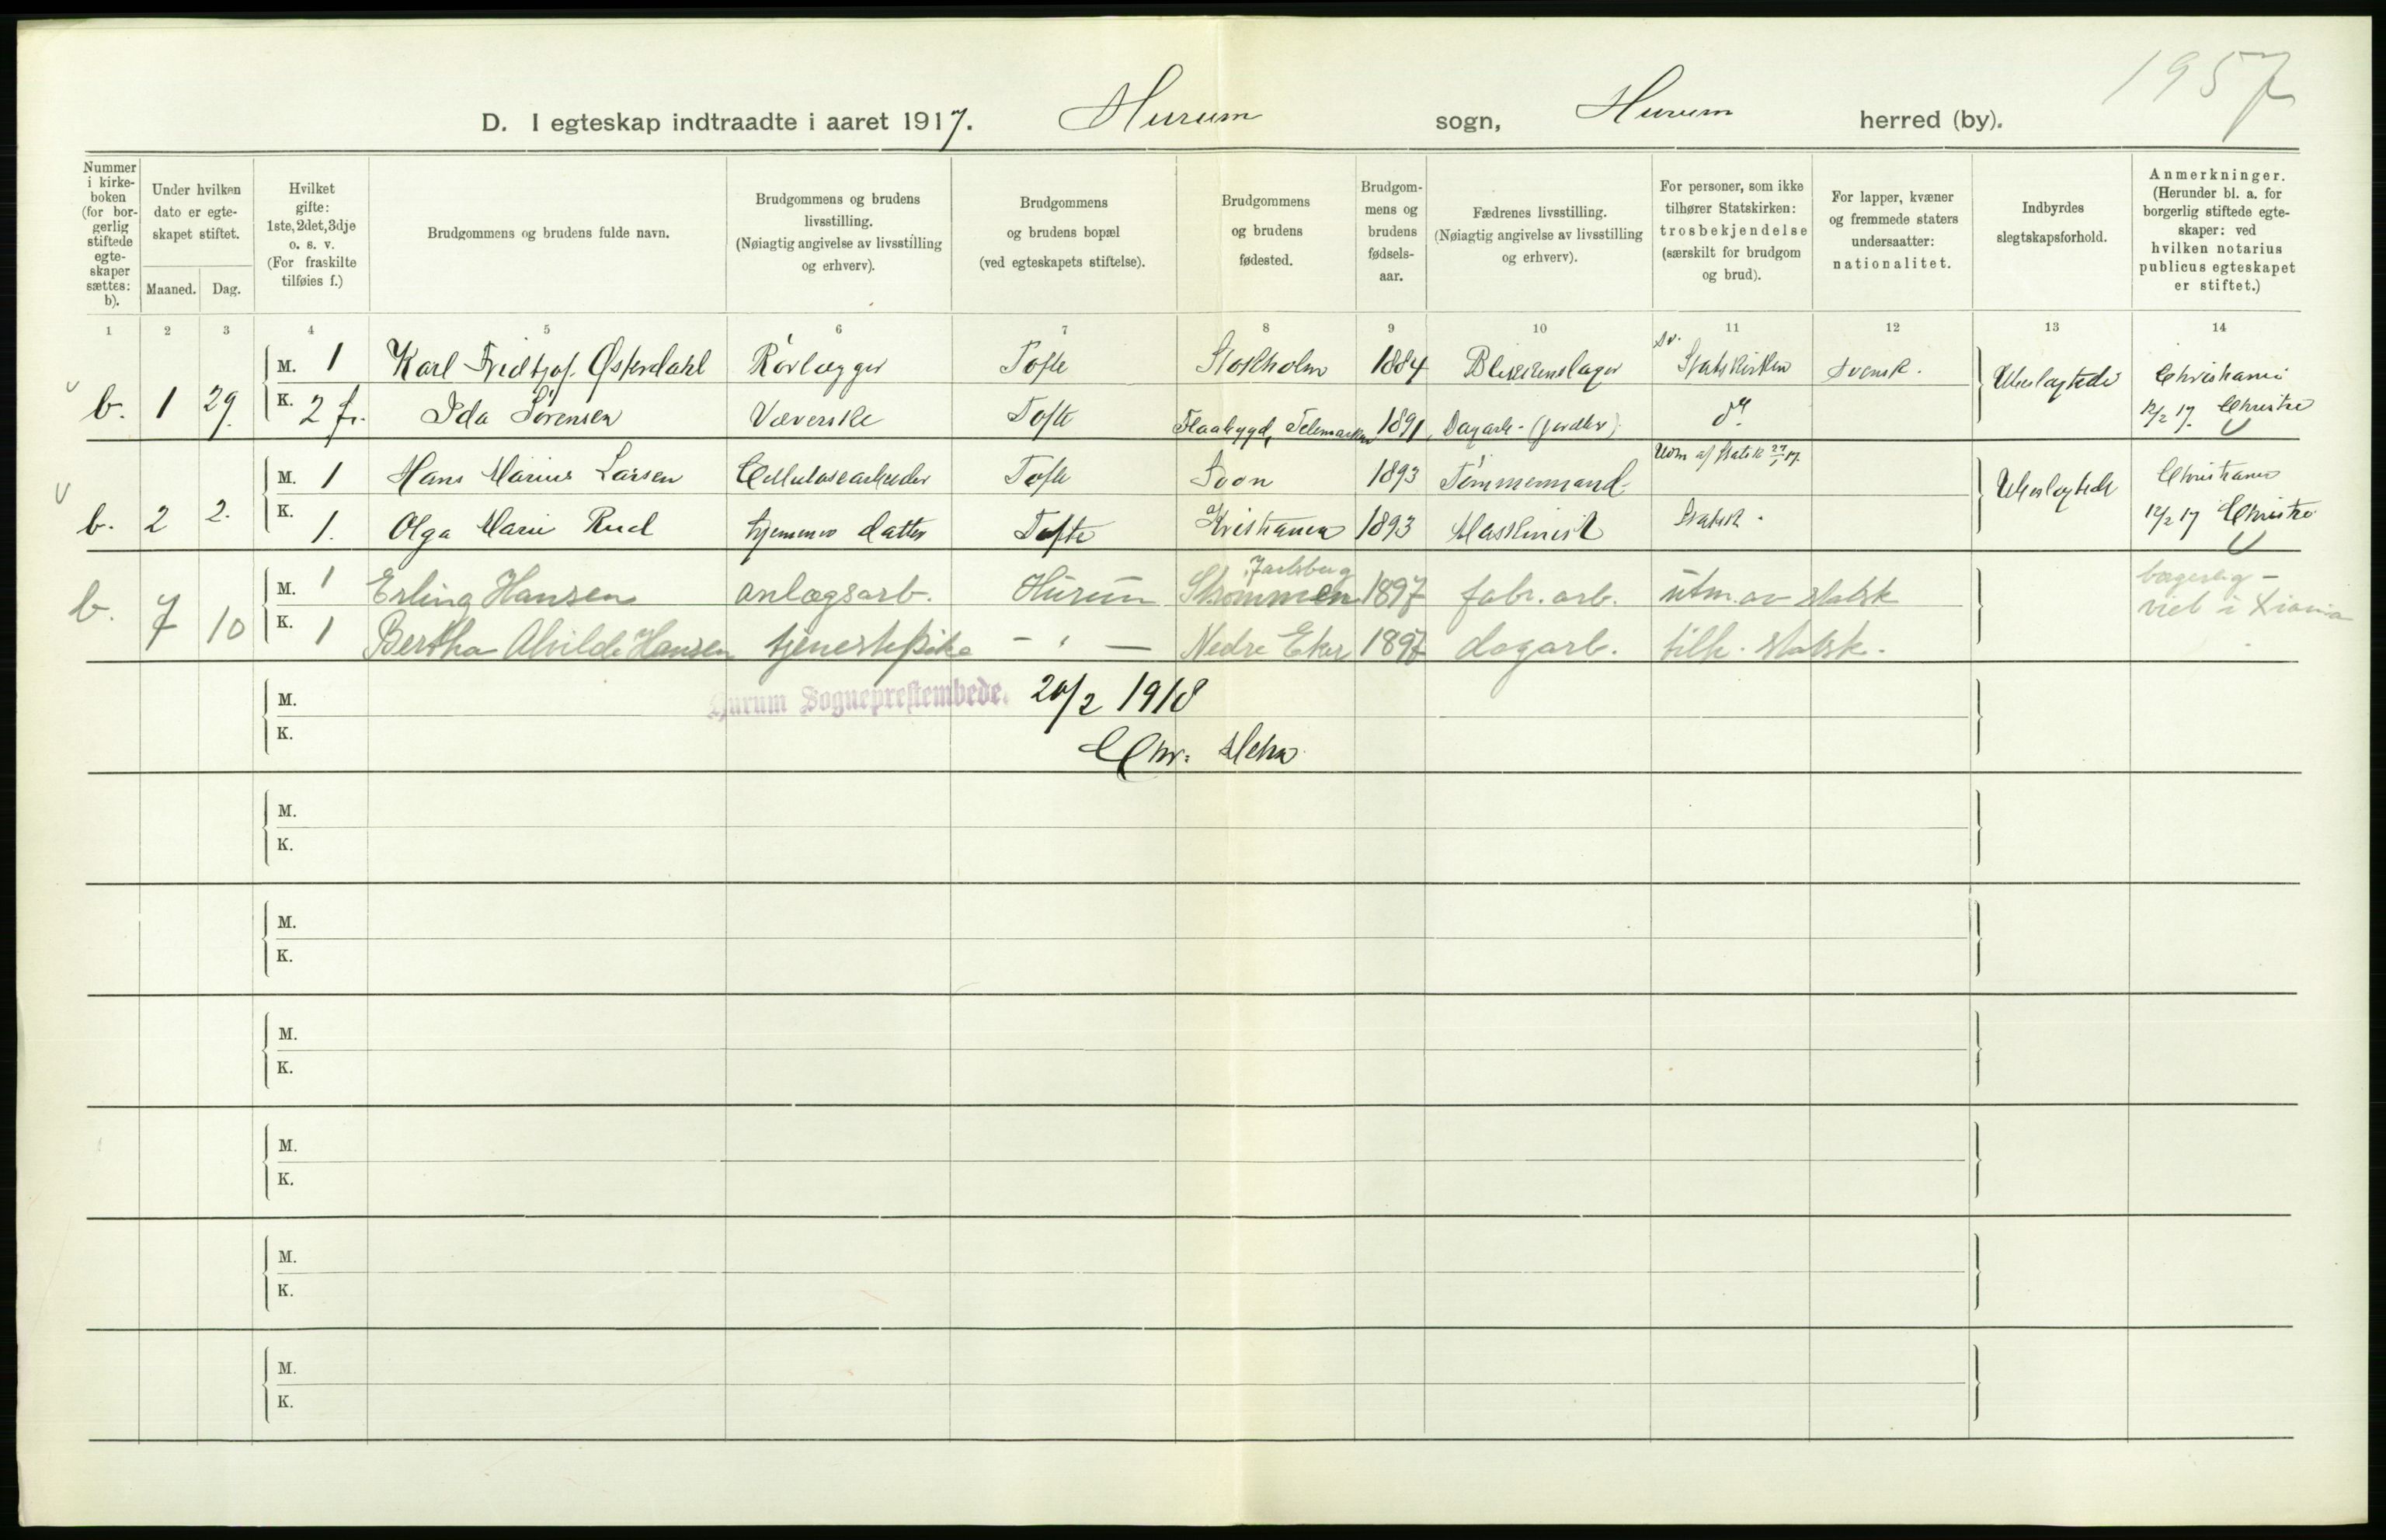 1957
D. I egteskap indtraadte i aaret 1917. Hurum sogn, Hurum herred (by).
Nummer i kirke-boken (for bor-gerlig stiftede egte-skaper sættes: b).
Under hvilken dato er egte-skapet stiftet.
Maaned. Dag.
Hvilket gifte: 1ste, 2det, 3dje o. s. v. (For fraskilte tilføies f.)
Brudgommens og brudens fulde navn.
Brudgommens og brudens livsstilling. (Nøiagtig angivelse av livsstilling og erhverv).
Brudgommens og brudens bopæl (ved egteskapets stiftelse).
Brudgommens og brudens fødested.
Brudgom-mens og brudens fødsels-aar.
Fædrenes livsstilling. (Nøiagtig angivelse av livsstilling og erhverv).
For personer, som ikke tilhører Statskirken: trosbekjendelse (særskilt for brudgom og brud).
For lapper, kvæner og fremmede staters undersaatter: nationalitet.
Indbyrdes slegtskapsforhold.
Anmerkninger. (Herunder bl. a. for borgerlig stiftede egte-skaper: ved hvilken notarius publicus egteskapet er stiftet.)
1 2 3 4 5 6 7 8 9 10 11 12 13 14
M. 1 Karl Fridtjof Østerdahl Rørlægger Tofte Stokholm 1884 Blikkenslager Sv. Statskirken svensk. Ubeslægtede Christiania
b. 1 29. K. 2 fr. Ida Sørensen Væverske Tofte Flaabygd, Telemarken 1891 Dagarb. do 12/2 17.
M. 1 Hans Marius Larsen Cellulosearbeider Tofte Soon 1893 Tømmermand Udm af Statsk 27/1 17. Ubeslægtede Christiania
b. 2 2. K. 1. Olga Marie Rud hjemmev datter Tofte Kristiania 1893 Maskinist Statsk. 12/2 17
M. 1 Erling Hansen anlægsarb. Hurum Strømmen Jarlsberg 1897 fabr. arb. utm. av statsk borgerlig -
b. 7 10 K. 1 Bertha Alvilde Hansen tjenestepike - " - Nedre Eker 1897 dagarb. tilh. statsk. viet i Kr.ania
M. Hurum Sogneprestembede. 20/2 1918
K. Chr:
M.
K.
M.
K.
M.
K.
M.
K.
M.
K.
M.
K.